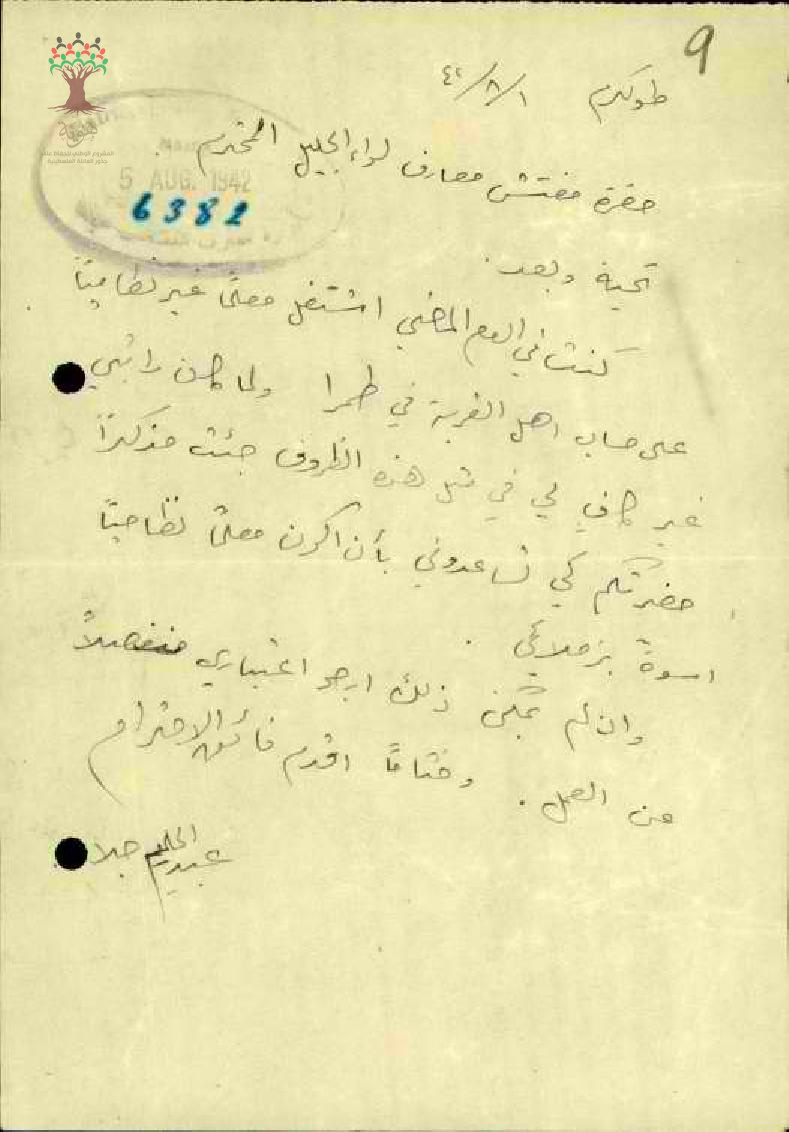 9
طولكرم ١/٨/٤٢
حضرة مفتش معارف لواء الجليل المحترم .
5 AUG. 1942
6382
تحية وبعد .
كنت في العام الماضي اشتغل معلمًا غير نظاميًا
على حساب اهل القرية في طمرا ولما كان راتبي
غير كافٍ لي في مثل هذه الظروف جئت مذكرًا
حضرتكم كي تساعدوني بأن اكون معلمًا نظاميًا
اسوة بزملائي .
وان لم يمكن ذلك ارجو اعتباري منفصلاً
من العمل . وختامًا اقدم فائق الاحترام
عبد الحليم